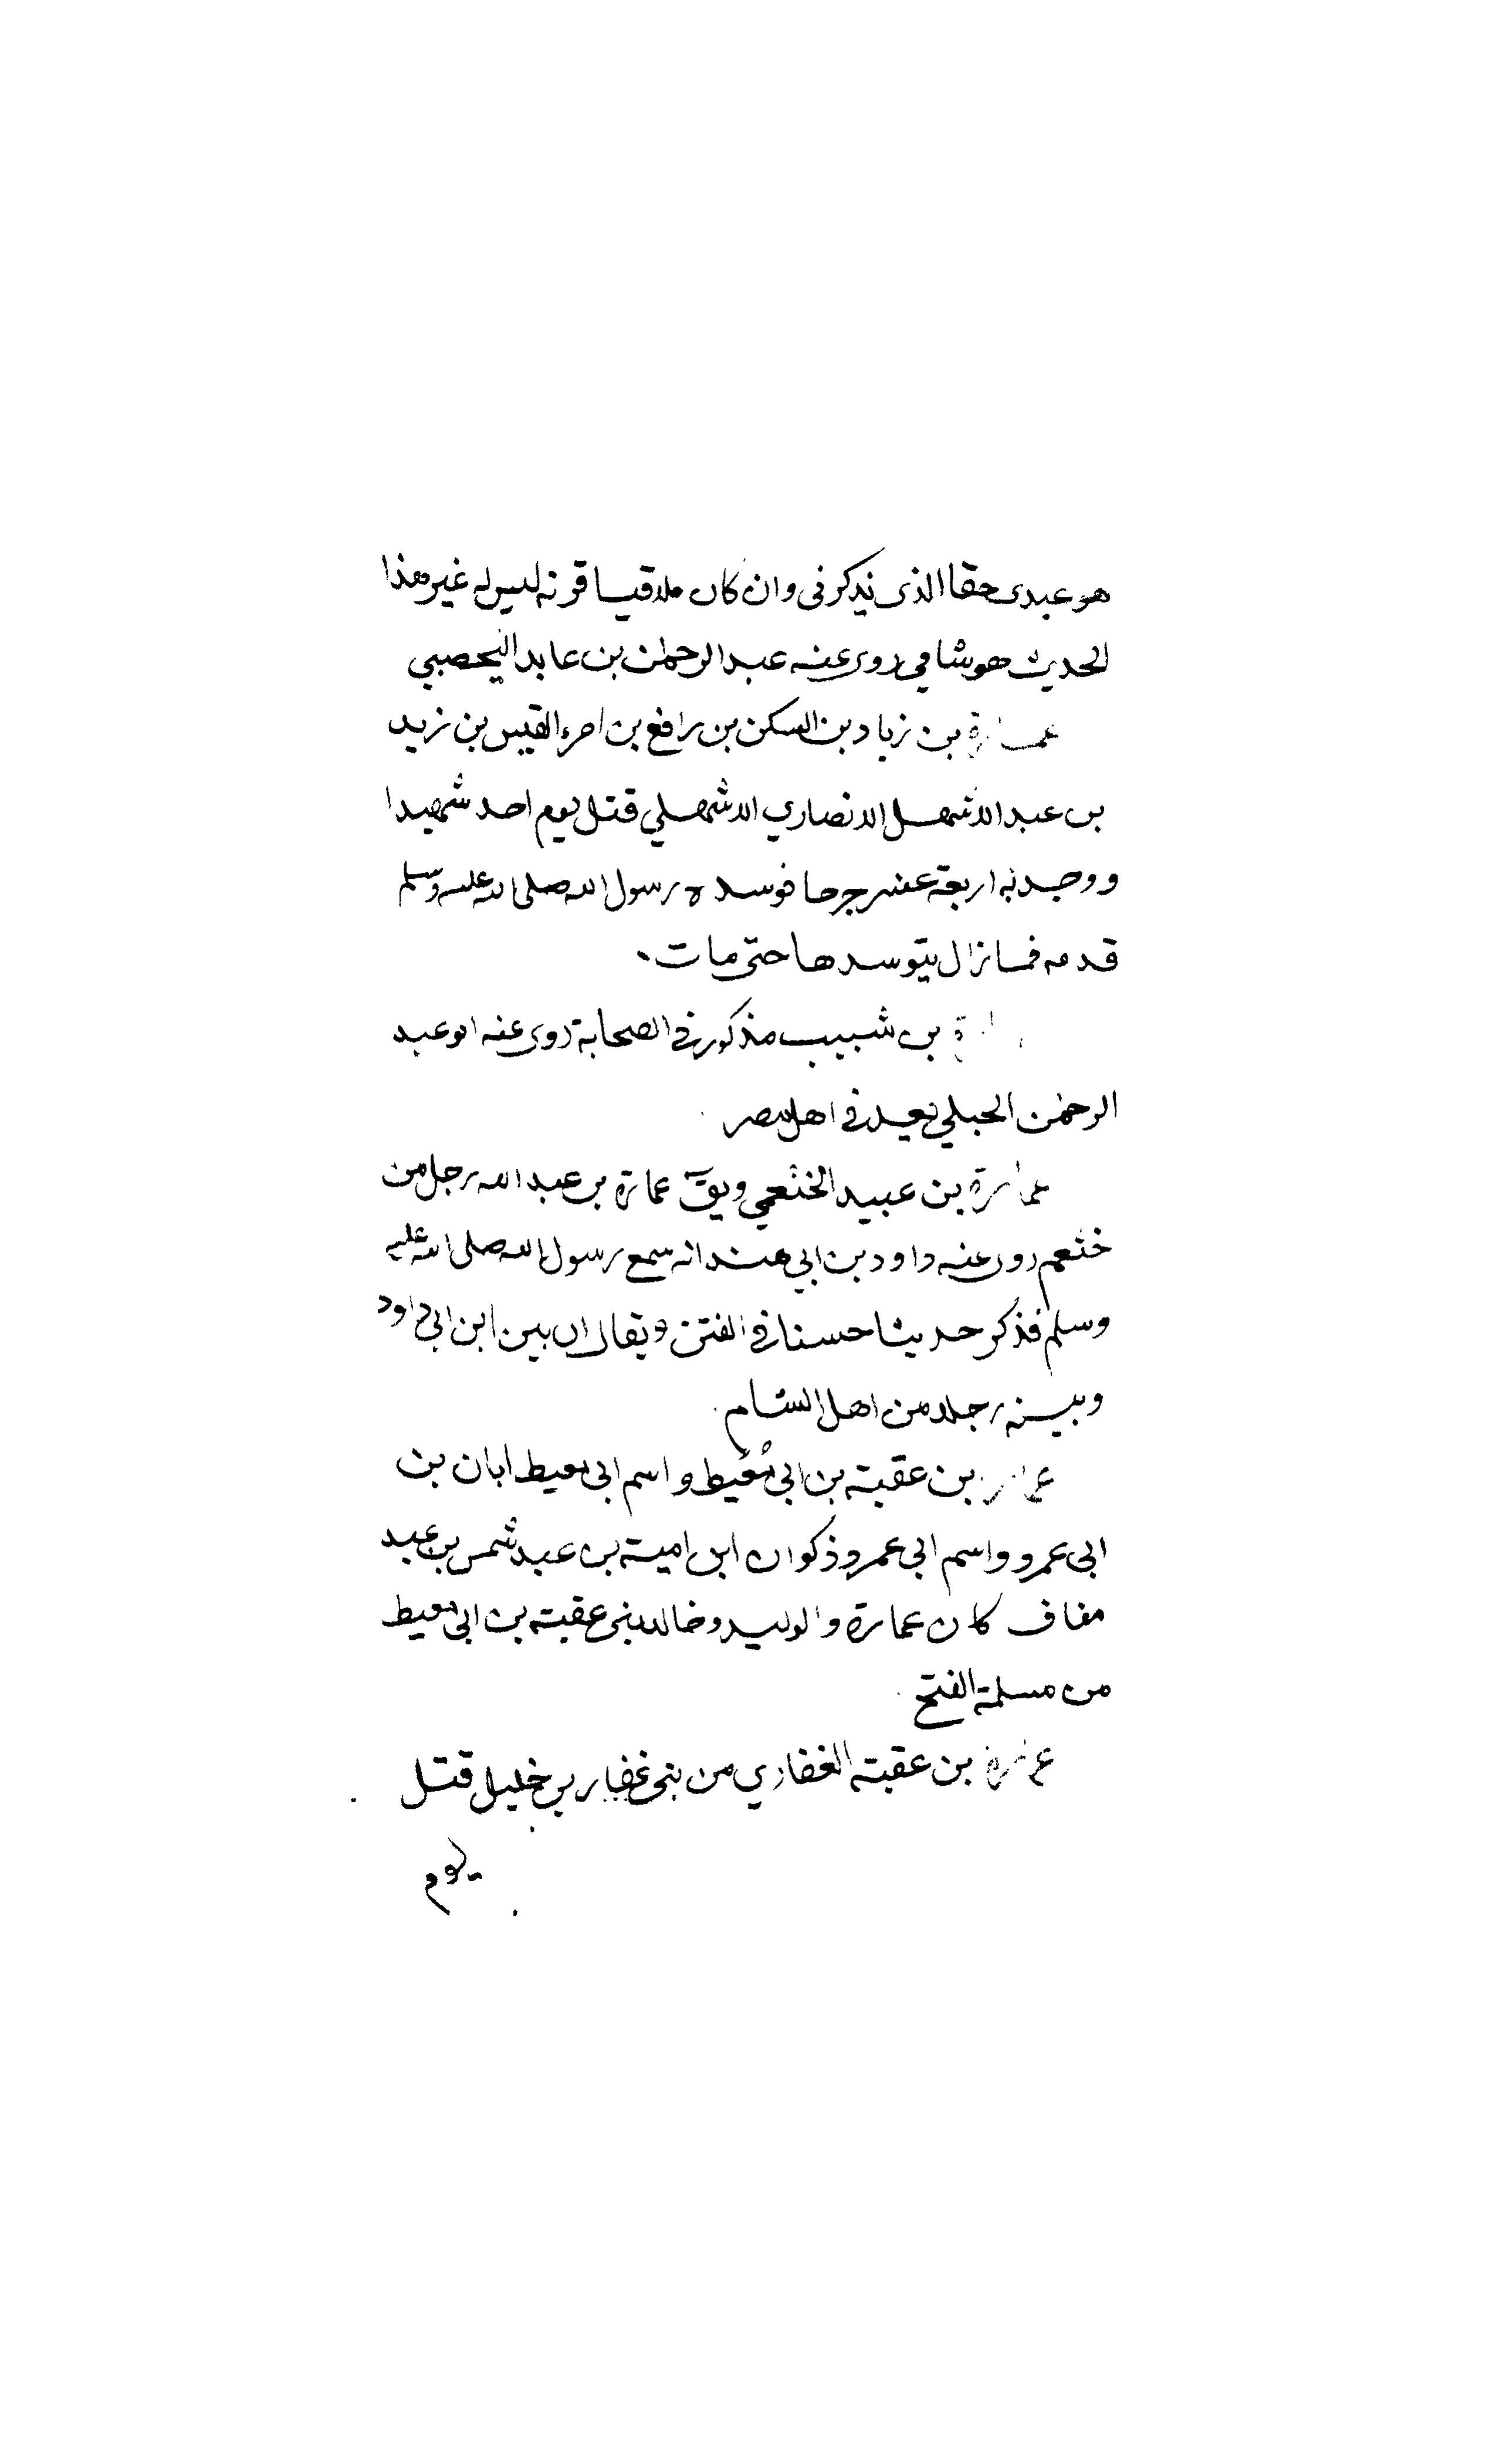 هو عبدى حقا الذى يذكرنى وان كان ملاقيا قرنه ليس له غير هذا
الحديث هو شامي روى عنه عبد الرحمن بن عابد اليحصبي
عمارة بن زياد بن السكن بن رافع بن امرء القيس بن زيد
بن عبد الاشهل الانصاري الاشهلي قتل يوم احد شهيدا
ووجد به اربعة عشر جرحا فوسده رسول الله صلى الله عليه وسلم
قدمه فما زال يتوسدها حتى مات.
بن شبيب مذكور في الصحابة روى عنه ابو عبد
الرحمن الحبلي يعد في اهل مصر
عمارة بن عبيد الخثعمي ويق عمارة بن عبد الله رجل من
خثعم روى عنه داود بن ابي هند انه سمع رسول الله صلى الله عليه
وسلم فذكر حديثا حسنا في الفتن ويقال ان بين ابن ابي داود
وبينه رجلا من اهل الشام.
بن عقبة بن ابي معيط واسم ابي معيط ابان بن
ابي عمرو واسم ابي عمرو ذكوان ابن امية بن عبد شمس بن عبد
مناف كان عمارة والوليد وخالد بنى عقبة بن ابي معيط
من مسلمة الفتح
عمارة بن عقبة الغفاري من بنى غفار بن خليل قتل
يوم